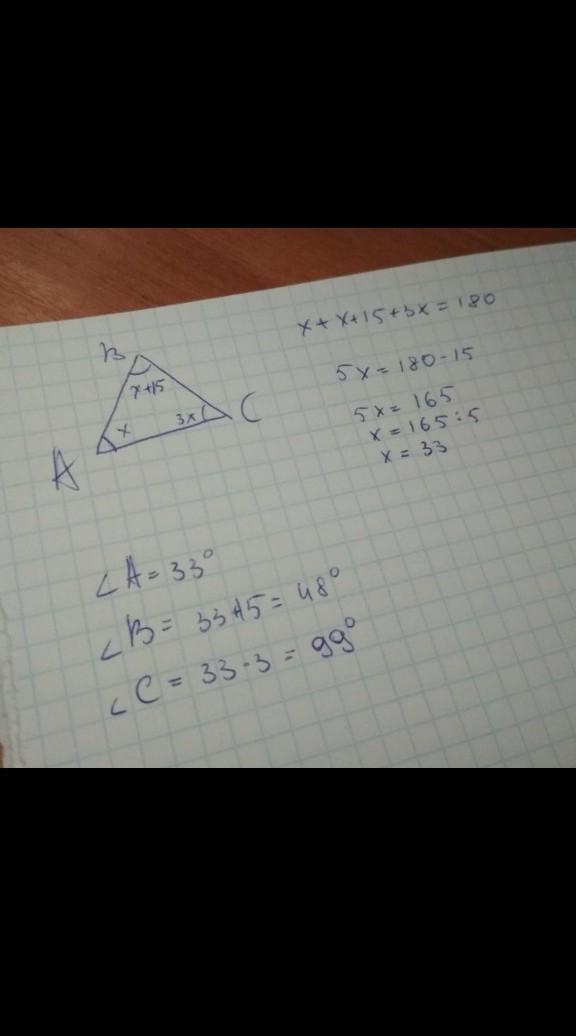 B
x+15
x
3x
C
A
x + x+15+3x = 180
5x = 180-15
5x = 165
x = 165:5
x = 33
∠A = 33°
∠B = 33+15 = 48°
∠C = 33·3 = 99°